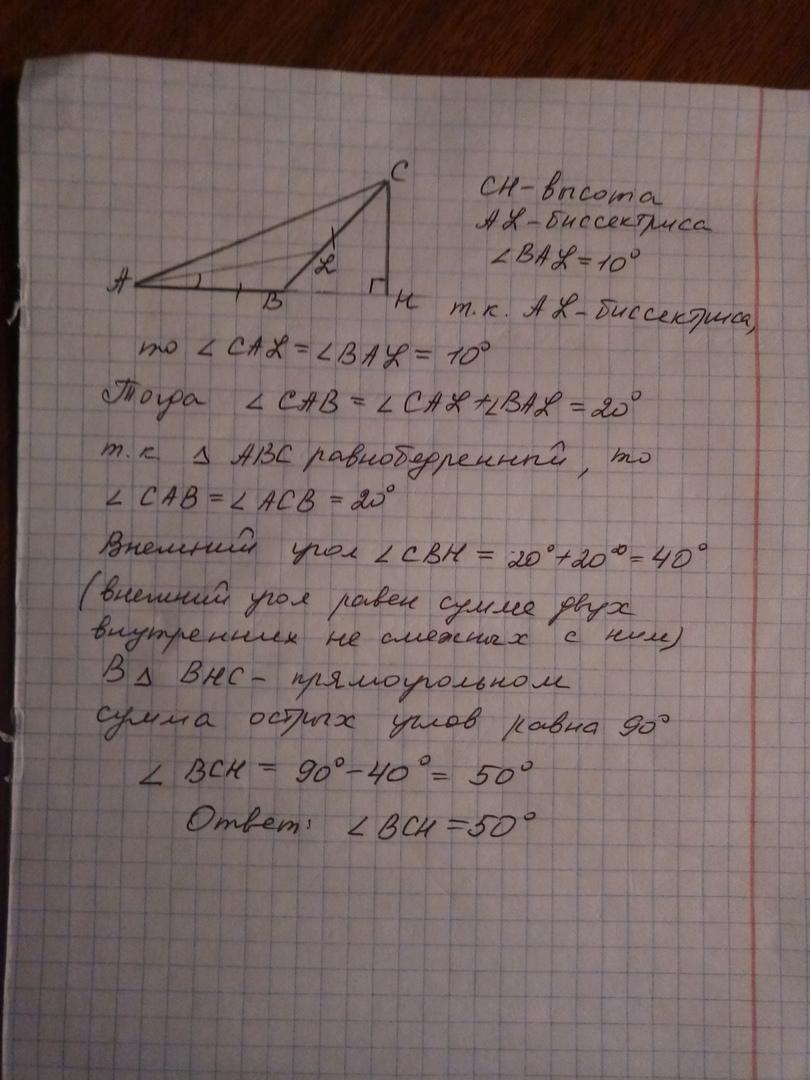 C
A
B
L
H
CH - высота
AL - биссектриса
∠BAL = 10°
т.к. AL - биссектриса,
то ∠CAL = ∠BAL = 10°
Тогда ∠CAB = ∠CAL + ∠BAL = 20°
т.к. △ ABC равнобедренный, то
∠CAB = ∠ACB = 20°
Внешний угол ∠CBH = 20° + 20° = 40°
(внешний угол равен сумме двух
внутренних не смежных с ним)
В △ BHC - прямоугольном
сумма острых углов равна 90°
∠BCH = 90° - 40° = 50°
Ответ: ∠BCH = 50°